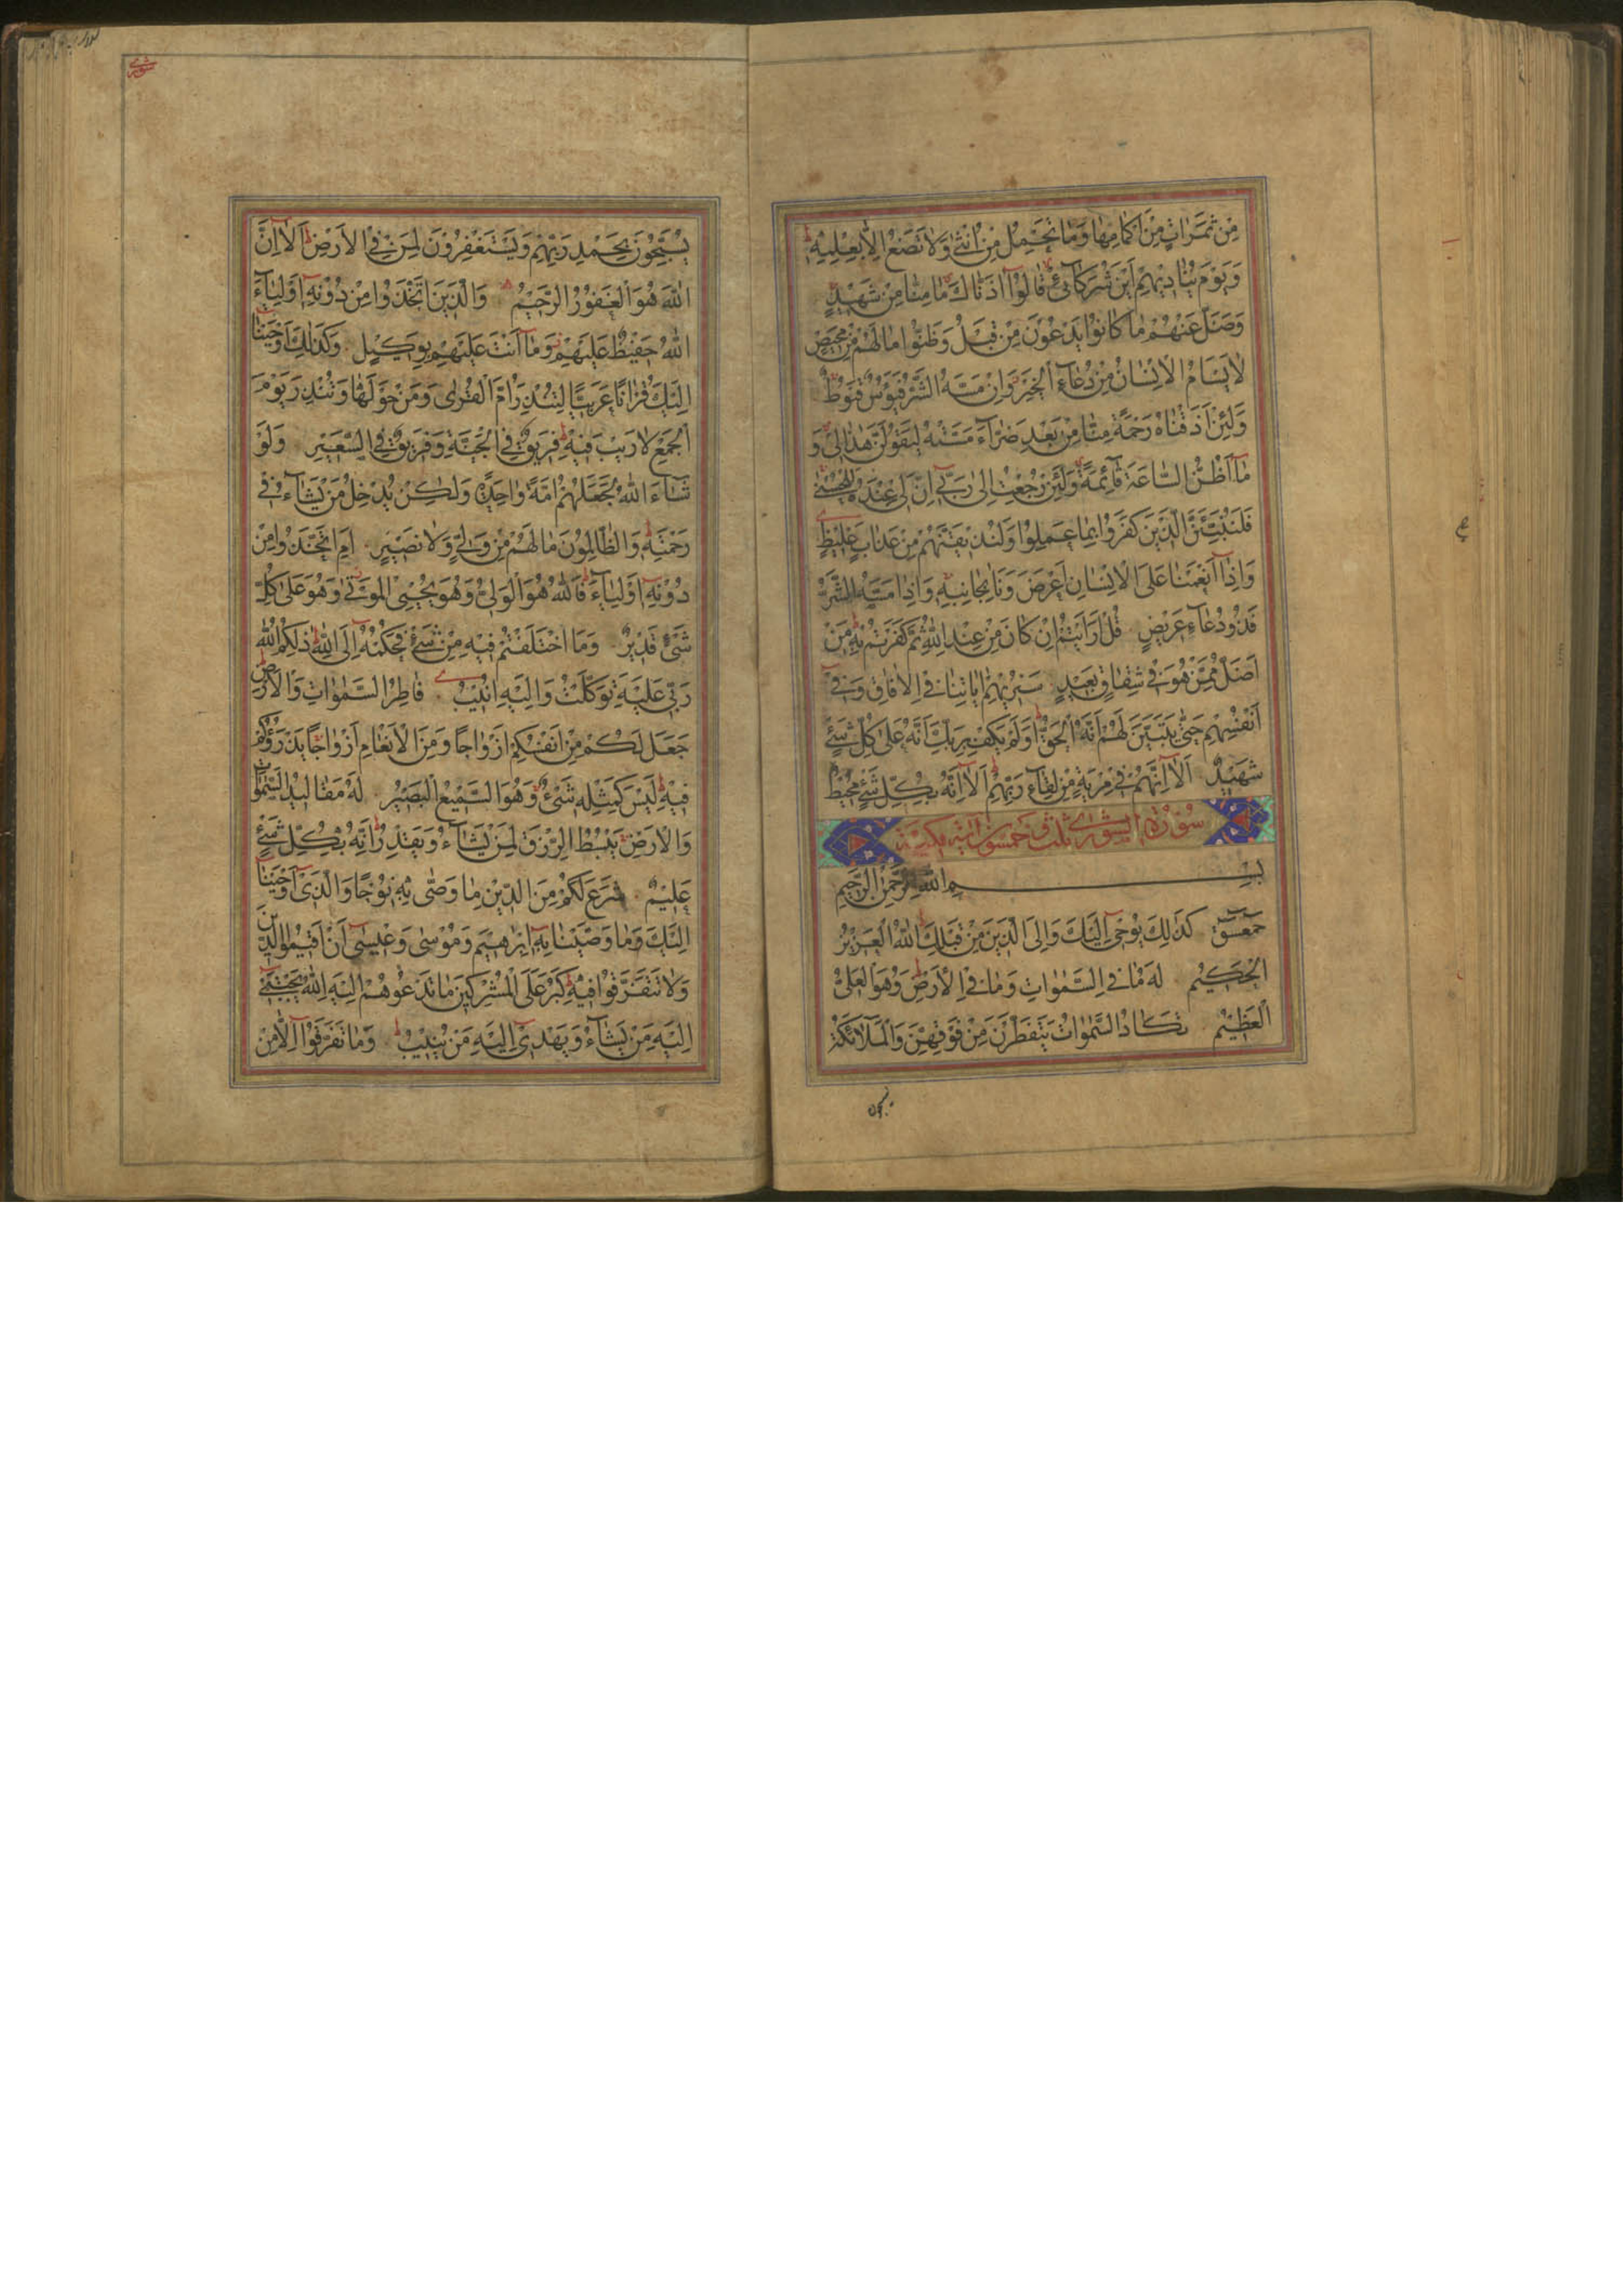 مِنْ ثَمَرَاتٍ مِنْ اَكْمَامِهَا وَمَا تَحْمِلُ مِنْ اُنْثٰى وَلَا تَضَعُ اِلَّا بِعِلْمِهٖ
وَيَوْمَ يُنَادِيهِمْ اَيْنَ شُرَكَآئِى قَالُوٓا اٰذَنَّاكَ مَا مِنَّا مِنْ شَهِيْدٍ
وَضَلَّ عَنْهُمْ مَا كَانُوْا يَدْعُوْنَ مِنْ قَبْلُ وَظَنُّوْا مَا لَهُمْ مِنْ مَحِيْصٍ
لَا يَسْاَمُ الْاِنْسَانُ مِنْ دُعَآءِ الْخَيْرِ وَاِنْ مَسَّهُ الشَّرُّ فَيَؤُسٌ قَنُوْطٌ
وَلَئِنْ اَذَقْنَاهُ رَحْمَةً مِنَّا مِنْ بَعْدِ ضَرَّآءَ مَسَّتْهُ لَيَقُوْلَنَّ هٰذَا لِى وَ
مَآ اَظُنُّ السَّاعَةَ قَآئِمَةً وَلَئِنْ رُجِعْتُ اِلٰى رَبِّٓى اِنَّ لِى عِنْدَهُ لَلْحُسْنٰى
فَلَنُنَبِّئَنَّ الَّذِيْنَ كَفَرُوْا بِمَا عَمِلُوْا وَلَنُذِيْقَنَّهُمْ مِنْ عَذَابٍ غَلِيْظٍ
وَاِذَآ اَنْعَمْنَا عَلَى الْاِنْسَانِ اَعْرَضَ وَنَاٰ بِجَانِبِهٖ وَاِذَا مَسَّهُ الشَّرُّ
فَذُوْ دُعَآءٍ عَرِيْضٍ قُلْ اَرَاَيْتُمْ اِنْ كَانَ مِنْ عِنْدِ اللّٰهِ ثُمَّ كَفَرْتُمْ بِهٖ مَنْ
اَضَلُّ مِمَّنْ هُوَ فِى شِقَاقٍ بَعِيْدٍ سَنُرِيْهِمْ اٰيَاتِنَا فِى الْاٰفَاقِ وَفِىٓ
اَنْفُسِهِمْ حَتّٰى يَتَبَيَّنَ لَهُمْ اَنَّهُ الْحَقُّ اَوَلَمْ يَكْفِ بِرَبِّكَ اَنَّهُ عَلٰى كُلِّ شَىْءٍ
شَهِيْدٌ اَلَآ اِنَّهُمْ فِى مِرْيَةٍ مِنْ لِقَآءِ رَبِّهِمْ اَلَآ اِنَّهُ بِكُلِّ شَىْءٍ مُحِيْطٌ
سُوْرَةُ الشورى ثلث و خمسون اية مكية
بِسْمِ اللّٰهِ الرَّحْمٰنِ الرَّحِيْمِ
حٰمٓعٓسٓقٓ كَذٰلِكَ يُوْحِىٓ اِلَيْكَ وَاِلَى الَّذِيْنَ مِنْ قَبْلِكَ اللّٰهُ الْعَزِيْزُ
الْحَكِيْمُ لَهُ مَا فِى السَّمٰوَاتِ وَمَا فِى الْاَرْضِ وَهُوَ الْعَلِىُّ
الْعَظِيْمُ تَكَادُ السَّمٰوَاتُ يَتَفَطَّرْنَ مِنْ فَوْقِهِنَّ وَالْمَلَآئِكَةُ
شورى
يُسَبِّحُوْنَ بِحَمْدِ رَبِّهِمْ وَيَسْتَغْفِرُوْنَ لِمَنْ فِى الْاَرْضِ اَلَآ اِنَّ
اللّٰهَ هُوَ الْغَفُوْرُ الرَّحِيْمُ وَالَّذِيْنَ اتَّخَذُوْا مِنْ دُوْنِهٖٓ اَوْلِيَآءَ
اللّٰهُ حَفِيْظٌ عَلَيْهِمْ وَمَآ اَنْتَ عَلَيْهِمْ بِوَكِيْلٍ وَكَذٰلِكَ اَوْحَيْنَآ
اِلَيْكَ قُرْاٰنًا عَرَبِيًّا لِتُنْذِرَ اُمَّ الْقُرٰى وَمَنْ حَوْلَهَا وَتُنْذِرَ يَوْمَ
الْجَمْعِ لَا رَيْبَ فِيْهِ فَرِيْقٌ فِى الْجَنَّةِ وَفَرِيْقٌ فِى السَّعِيْرِ وَلَوْ
شَآءَ اللّٰهُ لَجَعَلَهُمْ اُمَّةً وَاحِدَةً وَلٰكِنْ يُدْخِلُ مَنْ يَشَآءُ فِى
رَحْمَتِهٖ وَالظَّالِمُوْنَ مَا لَهُمْ مِنْ وَلِىٍّ وَلَا نَصِيْرٍ اَمِ اتَّخَذُوْا مِنْ
دُوْنِهٖٓ اَوْلِيَآءَ فَاللّٰهُ هُوَ الْوَلِىُّ وَهُوَ يُحْيِى الْمَوْتٰى وَهُوَ عَلٰى كُلِّ
شَىْءٍ قَدِيْرٌ وَمَا اخْتَلَفْتُمْ فِيْهِ مِنْ شَىْءٍ فَحُكْمُهُٓ اِلَى اللّٰهِ ذٰلِكُمُ اللّٰهُ
رَبِّى عَلَيْهِ تَوَكَّلْتُ وَاِلَيْهِ اُنِيْبُ فَاطِرُ السَّمٰوَاتِ وَالْاَرْضِ
جَعَلَ لَكُمْ مِنْ اَنْفُسِكُمْ اَزْوَاجًا وَمِنَ الْاَنْعَامِ اَزْوَاجًا يَذْرَؤُكُمْ
فِيْهِ لَيْسَ كَمِثْلِهٖ شَىْءٌ وَهُوَ السَّمِيْعُ الْبَصِيْرُ لَهُ مَقَالِيْدُ السَّمٰوَاتِ
وَالْاَرْضِ يَبْسُطُ الرِّزْقَ لِمَنْ يَشَآءُ وَيَقْدِرُ اِنَّهُ بِكُلِّ شَىْءٍ
عَلِيْمٌ شَرَعَ لَكُمْ مِنَ الدِّيْنِ مَا وَصّٰى بِهٖ نُوْحًا وَالَّذِىٓ اَوْحَيْنَآ
اِلَيْكَ وَمَا وَصَّيْنَا بِهٖٓ اِبْرٰهِيْمَ وَمُوْسٰى وَعِيْسٰٓى اَنْ اَقِيْمُوا الدِّيْنَ
وَلَا تَتَفَرَّقُوْا فِيْهِ كَبُرَ عَلَى الْمُشْرِكِيْنَ مَا تَدْعُوْهُمْ اِلَيْهِ اَللّٰهُ يَجْتَبِىٓ
اِلَيْهِ مَنْ يَشَآءُ وَيَهْدِىٓ اِلَيْهِ مَنْ يُنِيْبُ وَمَا تَفَرَّقُوْٓا اِلَّا مِنْ